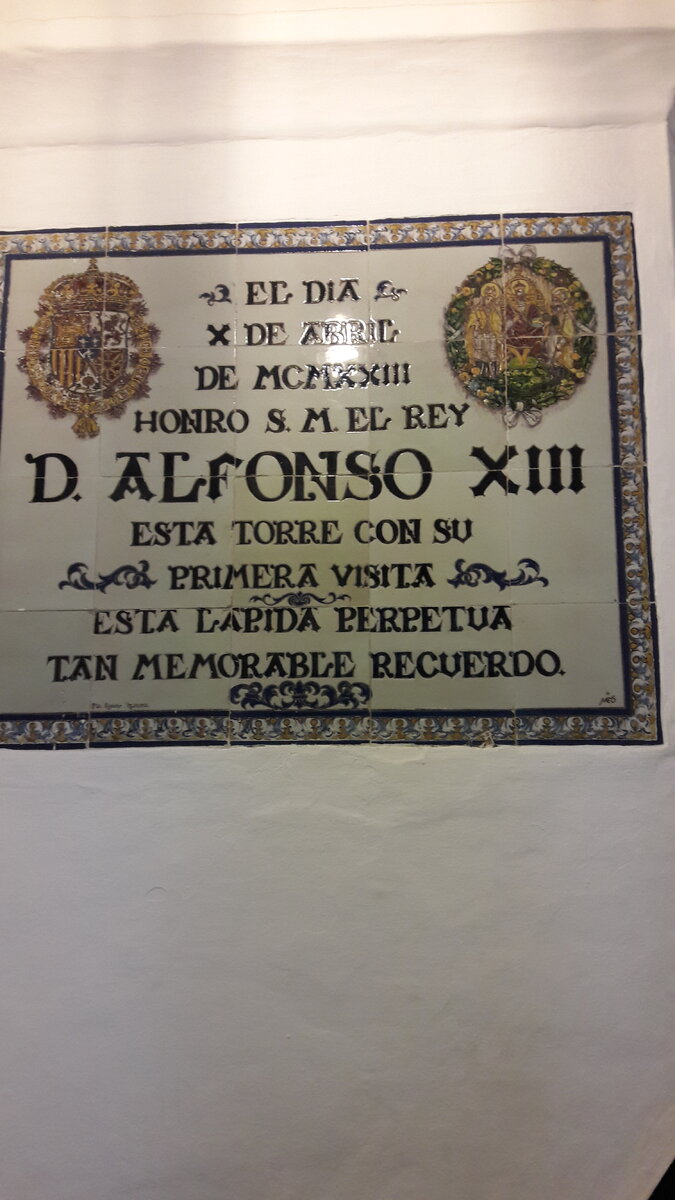 EL DIA
X DE ABRIL
DE MCMXXIII
HONRO S. M. EL REY
D. ALFONSO XIII
ESTA TORRE CON SU
PRIMERA VISITA
ESTA LAPIDA PERPETUA
TAN MEMORABLE RECUERDO.